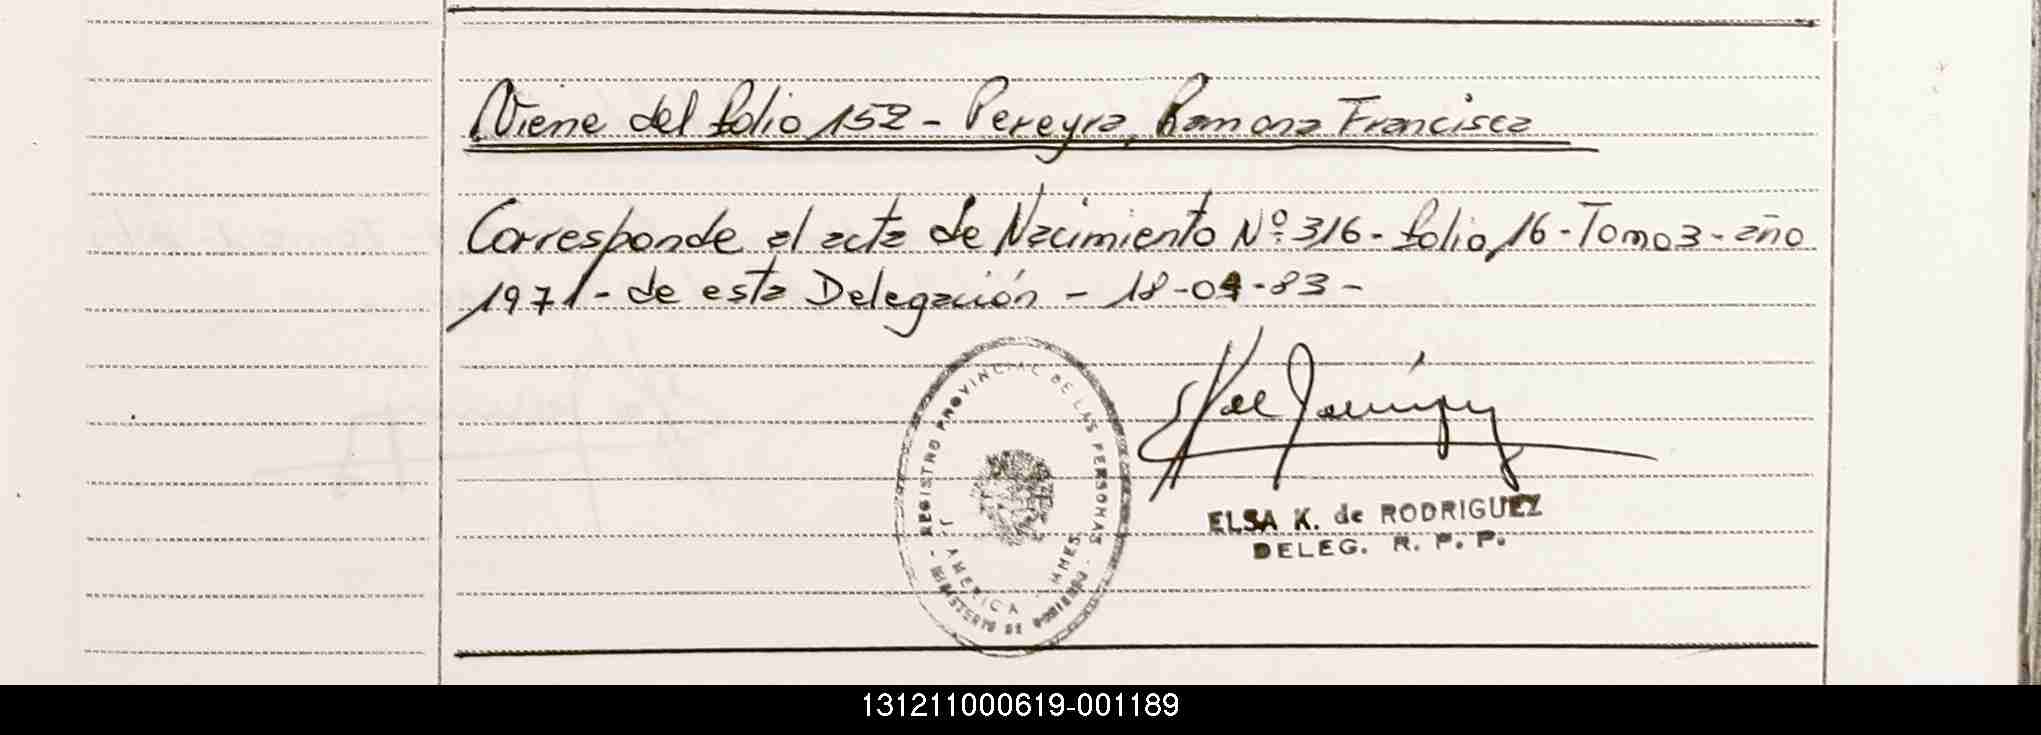 Viene del folio 152 - Pereyra, Ramona Francisca
Corresponde al acta de Nacimiento Nº: 316 - folio 16 - Tomo 3 - año
1971 - de esta Delegación - 18-04-83 -
REGISTRO PROVINCIAL DE LAS PERSONAS
AMERICA
ELSA K. de RODRIGUEZ
DELEG. R. P. P.
131211000619-001189